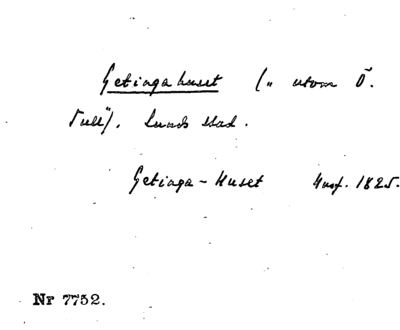 Getingahuset („ utom Ö.
Tull"). Lunds stad.
Getinga-Huset Husf. 1825.
Nr 7752.